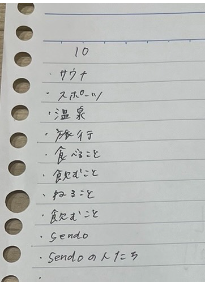 10
・サウナ
・スポーツ
・温泉
・旅行
・食べること
・飲むこと
・ねること
・飲むこと
・Sendo
・Sendoの人たち
・